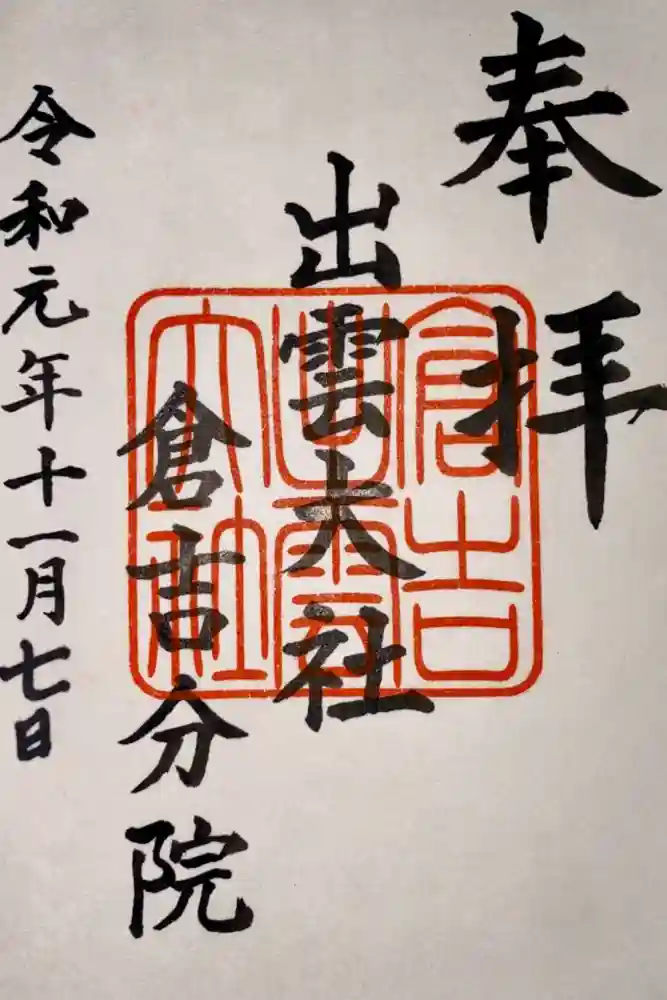 奉拝
出雲大社
倉吉分院
令和元年十一月七日
倉吉
出雲
大社